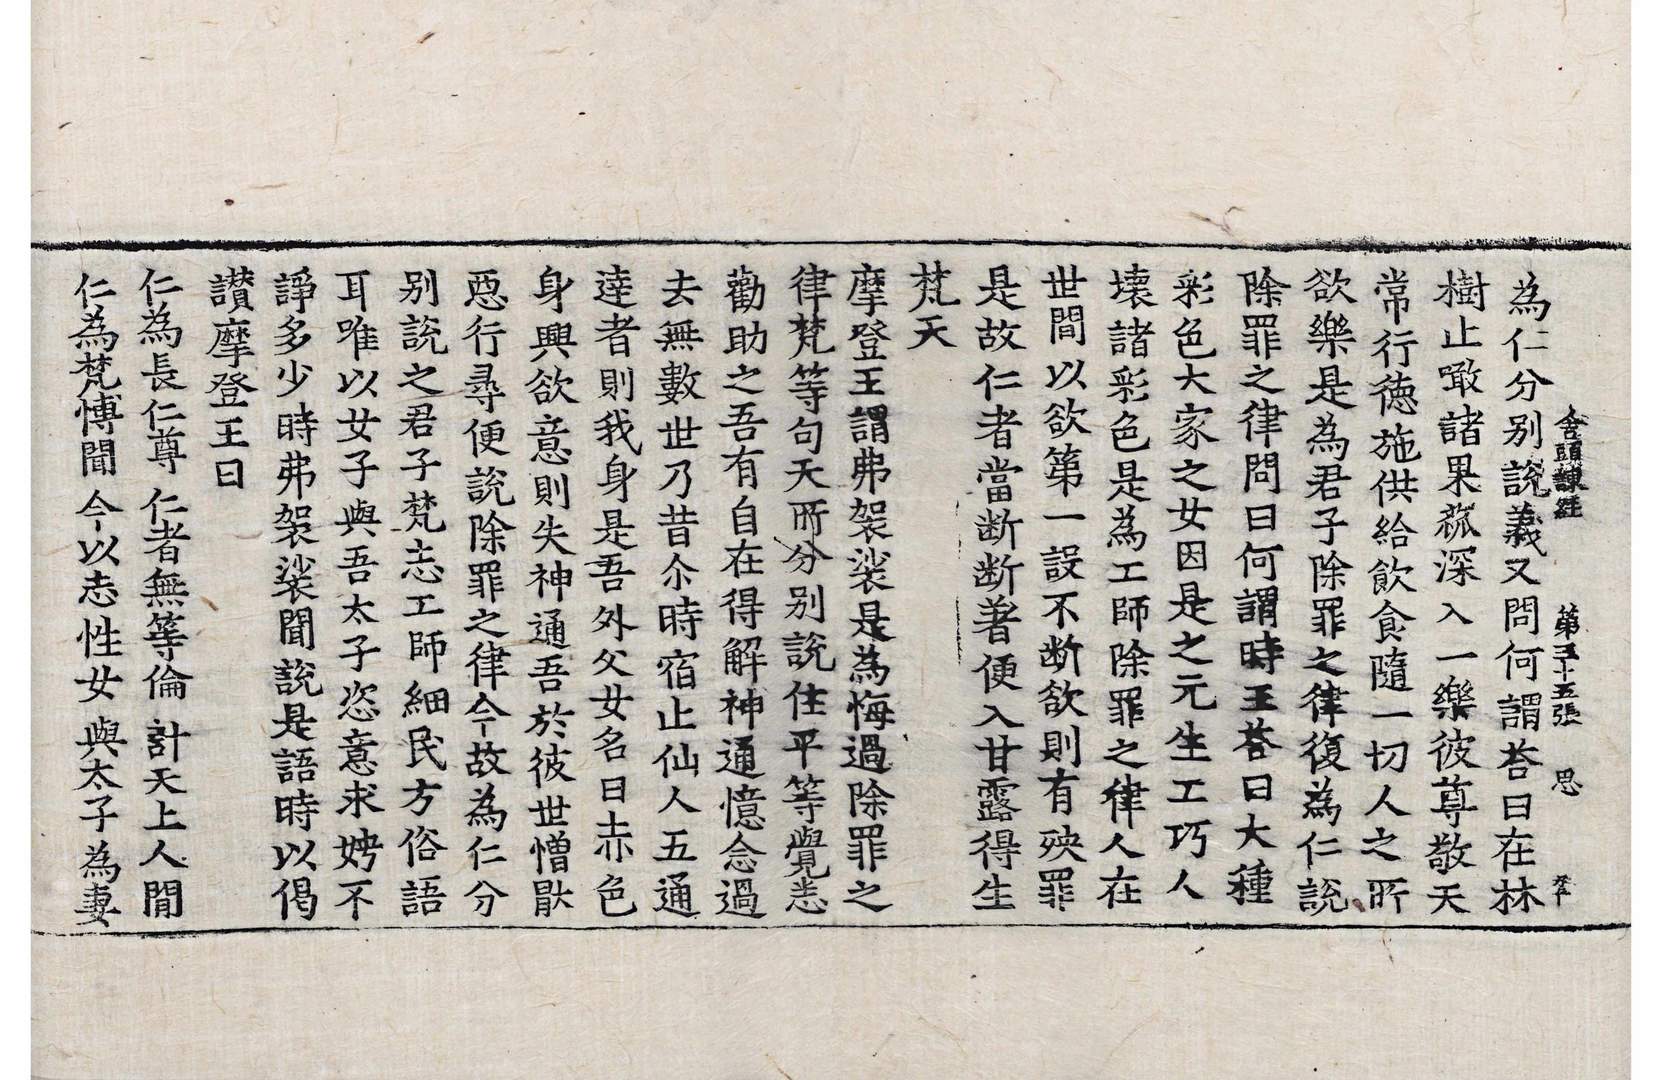 舍頭諫經 第五十五張 思
為仁分別說義又問何謂荅曰在林
樹止噉諸果蓏深入一樂彼尊敬天
常行德施供給飲食隨一切人之所
欲樂是為君子除罪之律復為仁說
除罪之律問曰何謂時王荅曰大種
彩色大家之女因是之元生工巧人
壞諸彩色是為工師除罪之律人在
世間以欲第一設不斷欲則有殃罪
是故仁者當断断著便入甘露得生
梵天
摩登王謂弗袈裟是為悔過除罪之
律梵等句天所分別說住平等覺志
勸助之吾有自在得解神通憶念過
去無數世乃昔尒時宿止仙人五通
達者則我身是吾外父女名曰赤色
身興欲意則失神通吾於彼世憎猒
惡行尋便說除罪之律今故為仁分
別說之君子梵志工師細民方俗語
耳唯以女子與吾太子恣意求娉不
諍多少時弗袈裟聞說是語時以偈
讃摩登王曰
仁為長仁尊 仁者無等倫 計天上人間
仁為梵愽聞 今以志性女 與太子為妻